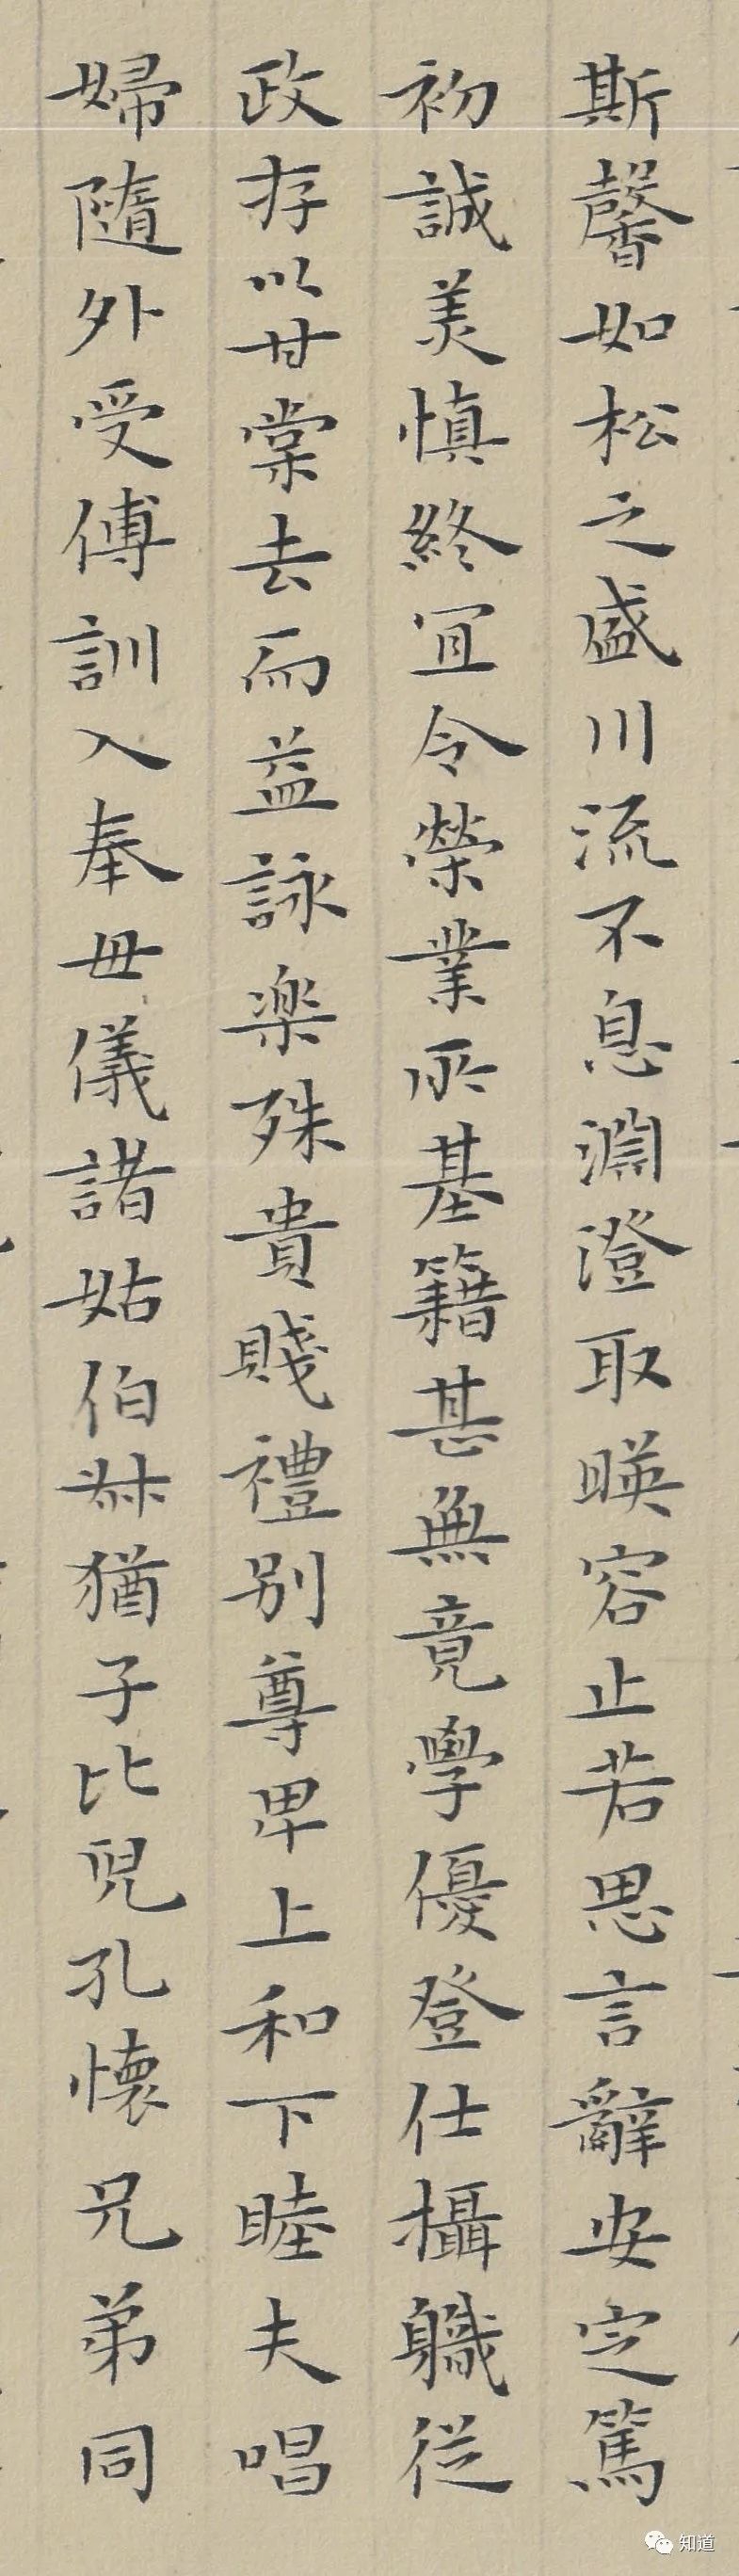 斯馨如松之盛川流不息淵澄取暎容止若思言辭安定篤
初誠美慎終冝令榮業所基籍甚無竟學優登仕攝職従
政存以甘棠去而益詠楽殊貴賤禮別尊卑上和下睦夫唱
婦隨外受傅訓入奉母儀諸姑伯叔猶子比兒孔懐兄弟同
知道